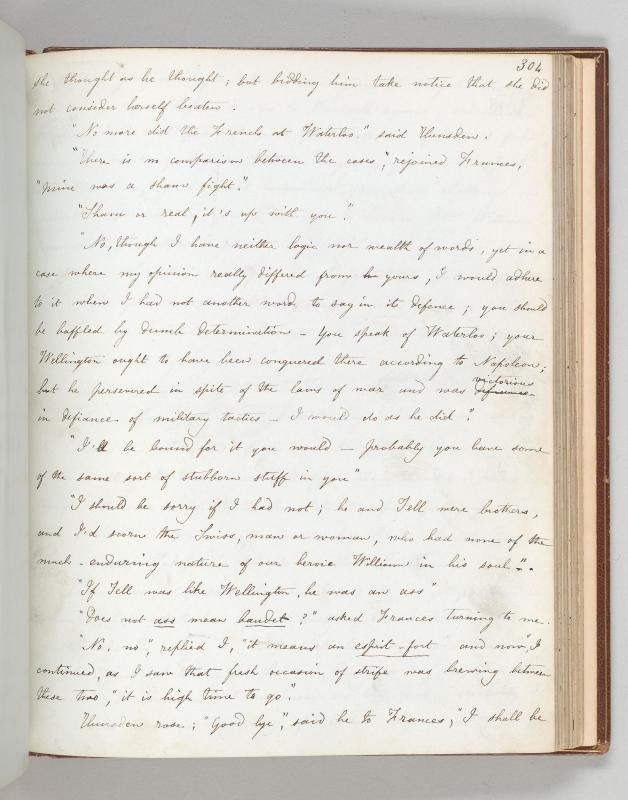 304
she thought as he thought; but bidding him take notice that she did
not consider herself beaten.
"No more did the French at Waterloo." said Hunsden.
"There is no comparison between the cases", rejoined Frances,
"mine was a sham fight".
"Sham or real, it's up with you."
"No, though I have neither logic nor wealth of words, yet in a
case where my opinion really differed from yours, I would adhere
to it when I had not another word to say in its defence; you should
be baffled by dumb determination – You speak of Waterloo; your
Wellington ought to have been conquered there according to Napoleon;
but he persevered in spite of the laws of war and was victorious
in defiance of military tactics – I would do as he did".
"I'll be bound for it you would – probably you have some
of the same sort of stubborn stuff in you"
"I should be sorry if I had not; he and Tell were brothers,
and I'd scorn the Swiss, man or woman, who had none of the
much-enduring nature of our heroic William in his soul".
"If Tell was like Wellington, he was an ass"
"Does not ass mean baudet?" asked Frances turning to me.
"No, no", replied I, "it means an esprit-fort and now", I
continued, as I saw that fresh occasion of strife was brewing between
these two, "it is high time to go".
Hunsden rose; "Good bye", said he to Frances, "I shall be